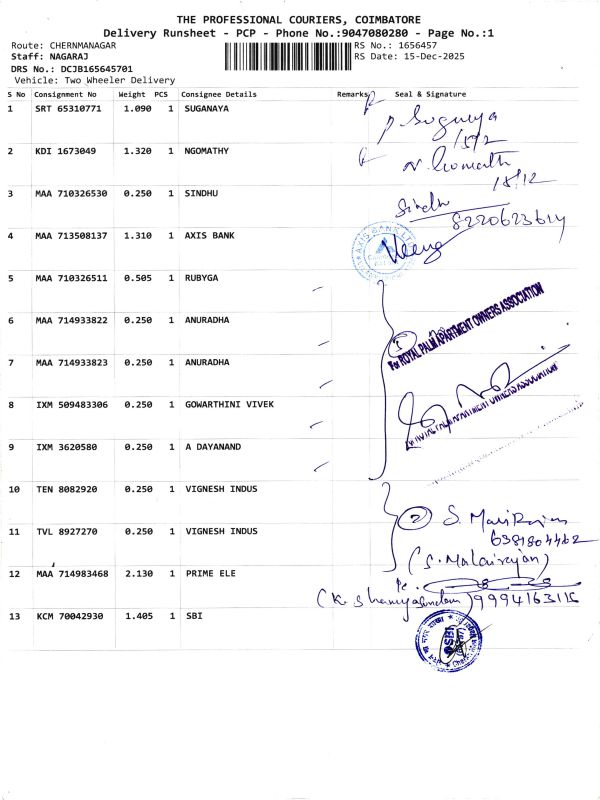 THE PROFESSIONAL COURIERS, COIMBATORE
Delivery Runsheet - PCP - Phone No.:9047080280 - Page No.:1
Route: CHERNMANAGAR RS No.: 1656457
Staff: NAGARAJ RS Date: 15-Dec-2025
DRS No.: DCJB165645701
Vehicle: Two Wheeler Delivery
S No Consignment No Weight PCS Consignee Details Remarks Seal & Signature
1 SRT 65310771 1.090 1 SUGANAYA
15/12
2 KDI 1673049 1.320 1 NGOMATHY
15/12
3 MAA 710326530 0.250 1 SINDHU Sindhu
8220623614
4 MAA 713508137 1.310 1 AXIS BANK AXIS BANK LTD
5 MAA 710326511 0.505 1 RUBYGA
6 MAA 714933822 0.250 1 ANURADHA 5
For ROYAL PALM APARTMENT OWNERS ASSOCIATION
7 MAA 714933823 0.250 1 ANURADHA
8 IXM 509483306 0.250 1 GOWARTHINI VIVEK
9 IXM 3620580 0.250 1 A DAYANAND
10 TEN 8082920 0.250 1 VIGNESH INDUS 2
11 TVL 8927270 0.250 1 VIGNESH INDUS
(S. Malairajan)
12 MAA 714983468 2.130 1 PRIME ELE
9994163116
13 KCM 70042930 1.405 1 SBI
SBI